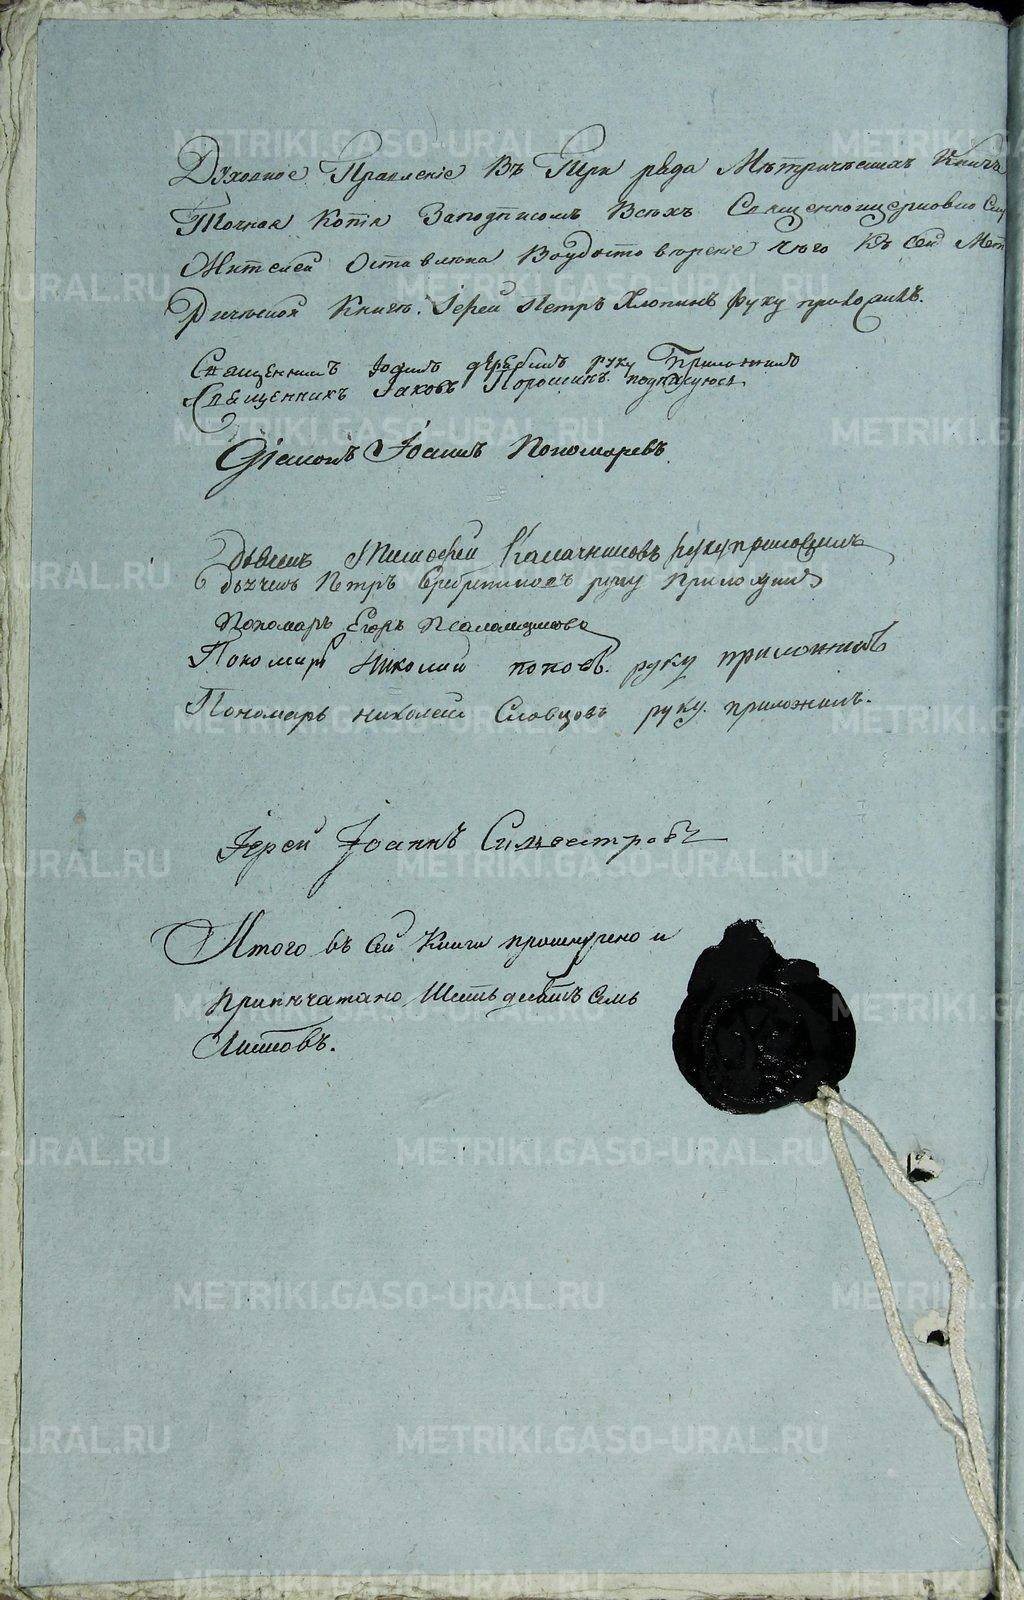 Духовное Правленіе Въ Цркви Метрическихъ Книгъ
Точная Копія Заподписомъ Всехъ Священноцерковно Слу
Жителей Оставлена Воудостоверение чего Къ сей Мет
Рической Книгѣ. Іерей Петръ Хлопинъ Руку приложилъ.
Священникъ руку Приложилъ
Священникъ Іаковъ Порошинъ подписуюся
Діаконъ Іоаннъ Пономаревъ
Дьячекъ Тимофей Калачниковъ руку приложилъ
дьячекъ Петръ Серебрениковъ руку приложилъ
Пономарь Егоръ Псаломщиковъ
Пономарь Николай поповъ. руку приложилъ
Пономарь николай Словцовъ руку. приложилъ.
Іерей Іоаннъ Сильвестровъ
Итого въ сей Книги прошнурено и
Припечатано Шестьдесятъ семь
Листовъ.
METRIKI.GASO-URAL.RU